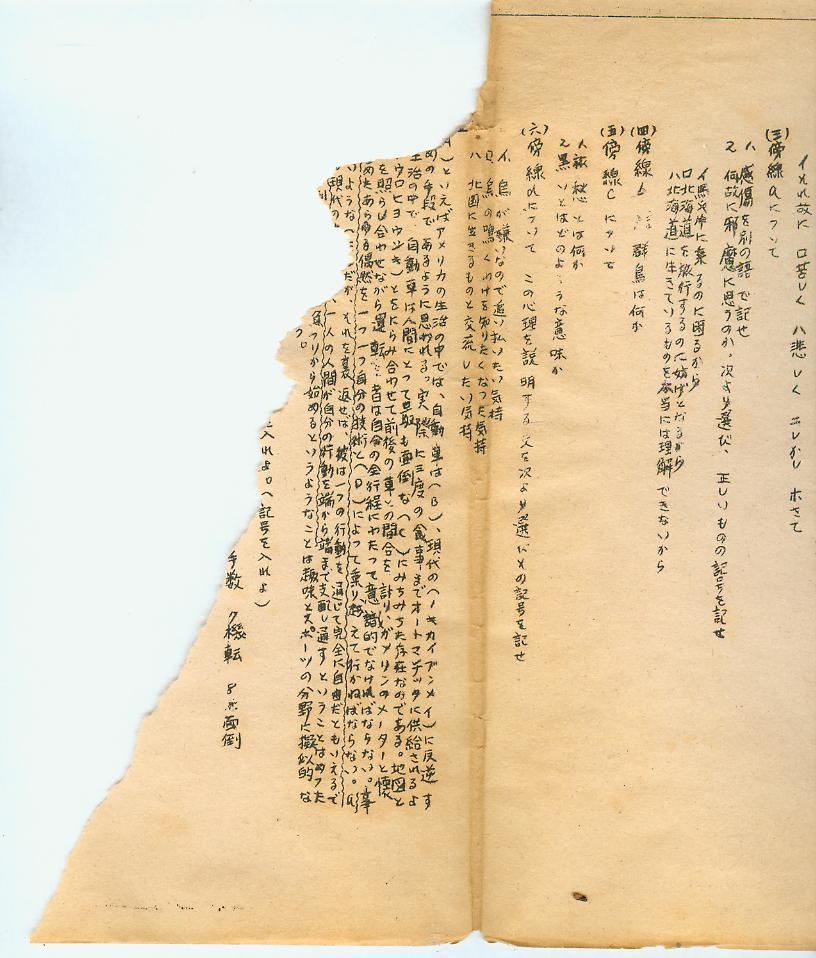 イそれ故に ロ苦しく ハ悲しく ニしかし ホさて
(三)傍線aについて
1、感傷を別の語で記せ
2、何故に邪魔に思うのか。次より選び、正しいものの記号を記せ
るのに困るから
ロ北海道を旅行するのに妨げとなるから
ハ北海道に生きているものを本当には理解できないから
(四)傍線b 群鳥は何か
(五)傍線cについて
1、 とは何か
2、黒いとはどのような意味か
(六)傍線dについて この心理を説明する文を次より選びその記号を記せ
イ、鳥が嫌いなので追い払いたい気持
ロ、鳥の鳴くわけを知りたくなった気持
ハ、北国に生きるものと交流したい気持
)といえばアメリカの生活の中では、自動車は(B)、現代のヘーキカイブンメイ)に反逆す
めの手段であるように思われる。実際に三度の食事までオートマチックに供給されるよ
生活の中で、自動車は人間にとって最も面倒な(C)にみちみちた存在なのである。地図と
ウロヒヨウシキ)とをにらみ合わせて前後の車との間合を計り、ガソリンのメーターと懐
を照らし合わせながら運転 者は自分の全行程にわたって意識的でなければならない。事
あらゆる偶然を一つ一つ自分の技術と(D)によって乗り越えて行かねばならない。
いような だが、それを裏返せば、彼は一つの行動を通じて完全に自由だともいえるで
現代の 、一人の人間が自分の行動を端から端まで支配し通すということはめった
から始めるというようなことは趣味とスポーツの分野に擬似的な
入れよ。(記号を入れよ)
手数 7機転 8 面倒